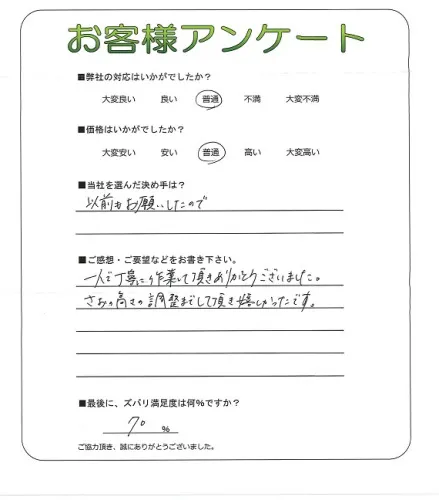 お客様アンケート
■弊社の対応はいかがでしたか?
大変良い 良い 普通 不満 大変不満
■価格はいかがでしたか?
大変安い 安い 普通 高い 大変高い
■当社を選んだ決め手は?
以前もお願いしたので
■ご感想・ご要望などをお書き下さい。
一人で丁寧に作業して頂きありがとうございました。
さおの高さの調整までして頂き嬉しかったです。
■最後に、ズバリ満足度は何%ですか?
70 %
ご協力頂き、誠にありがとうございました。